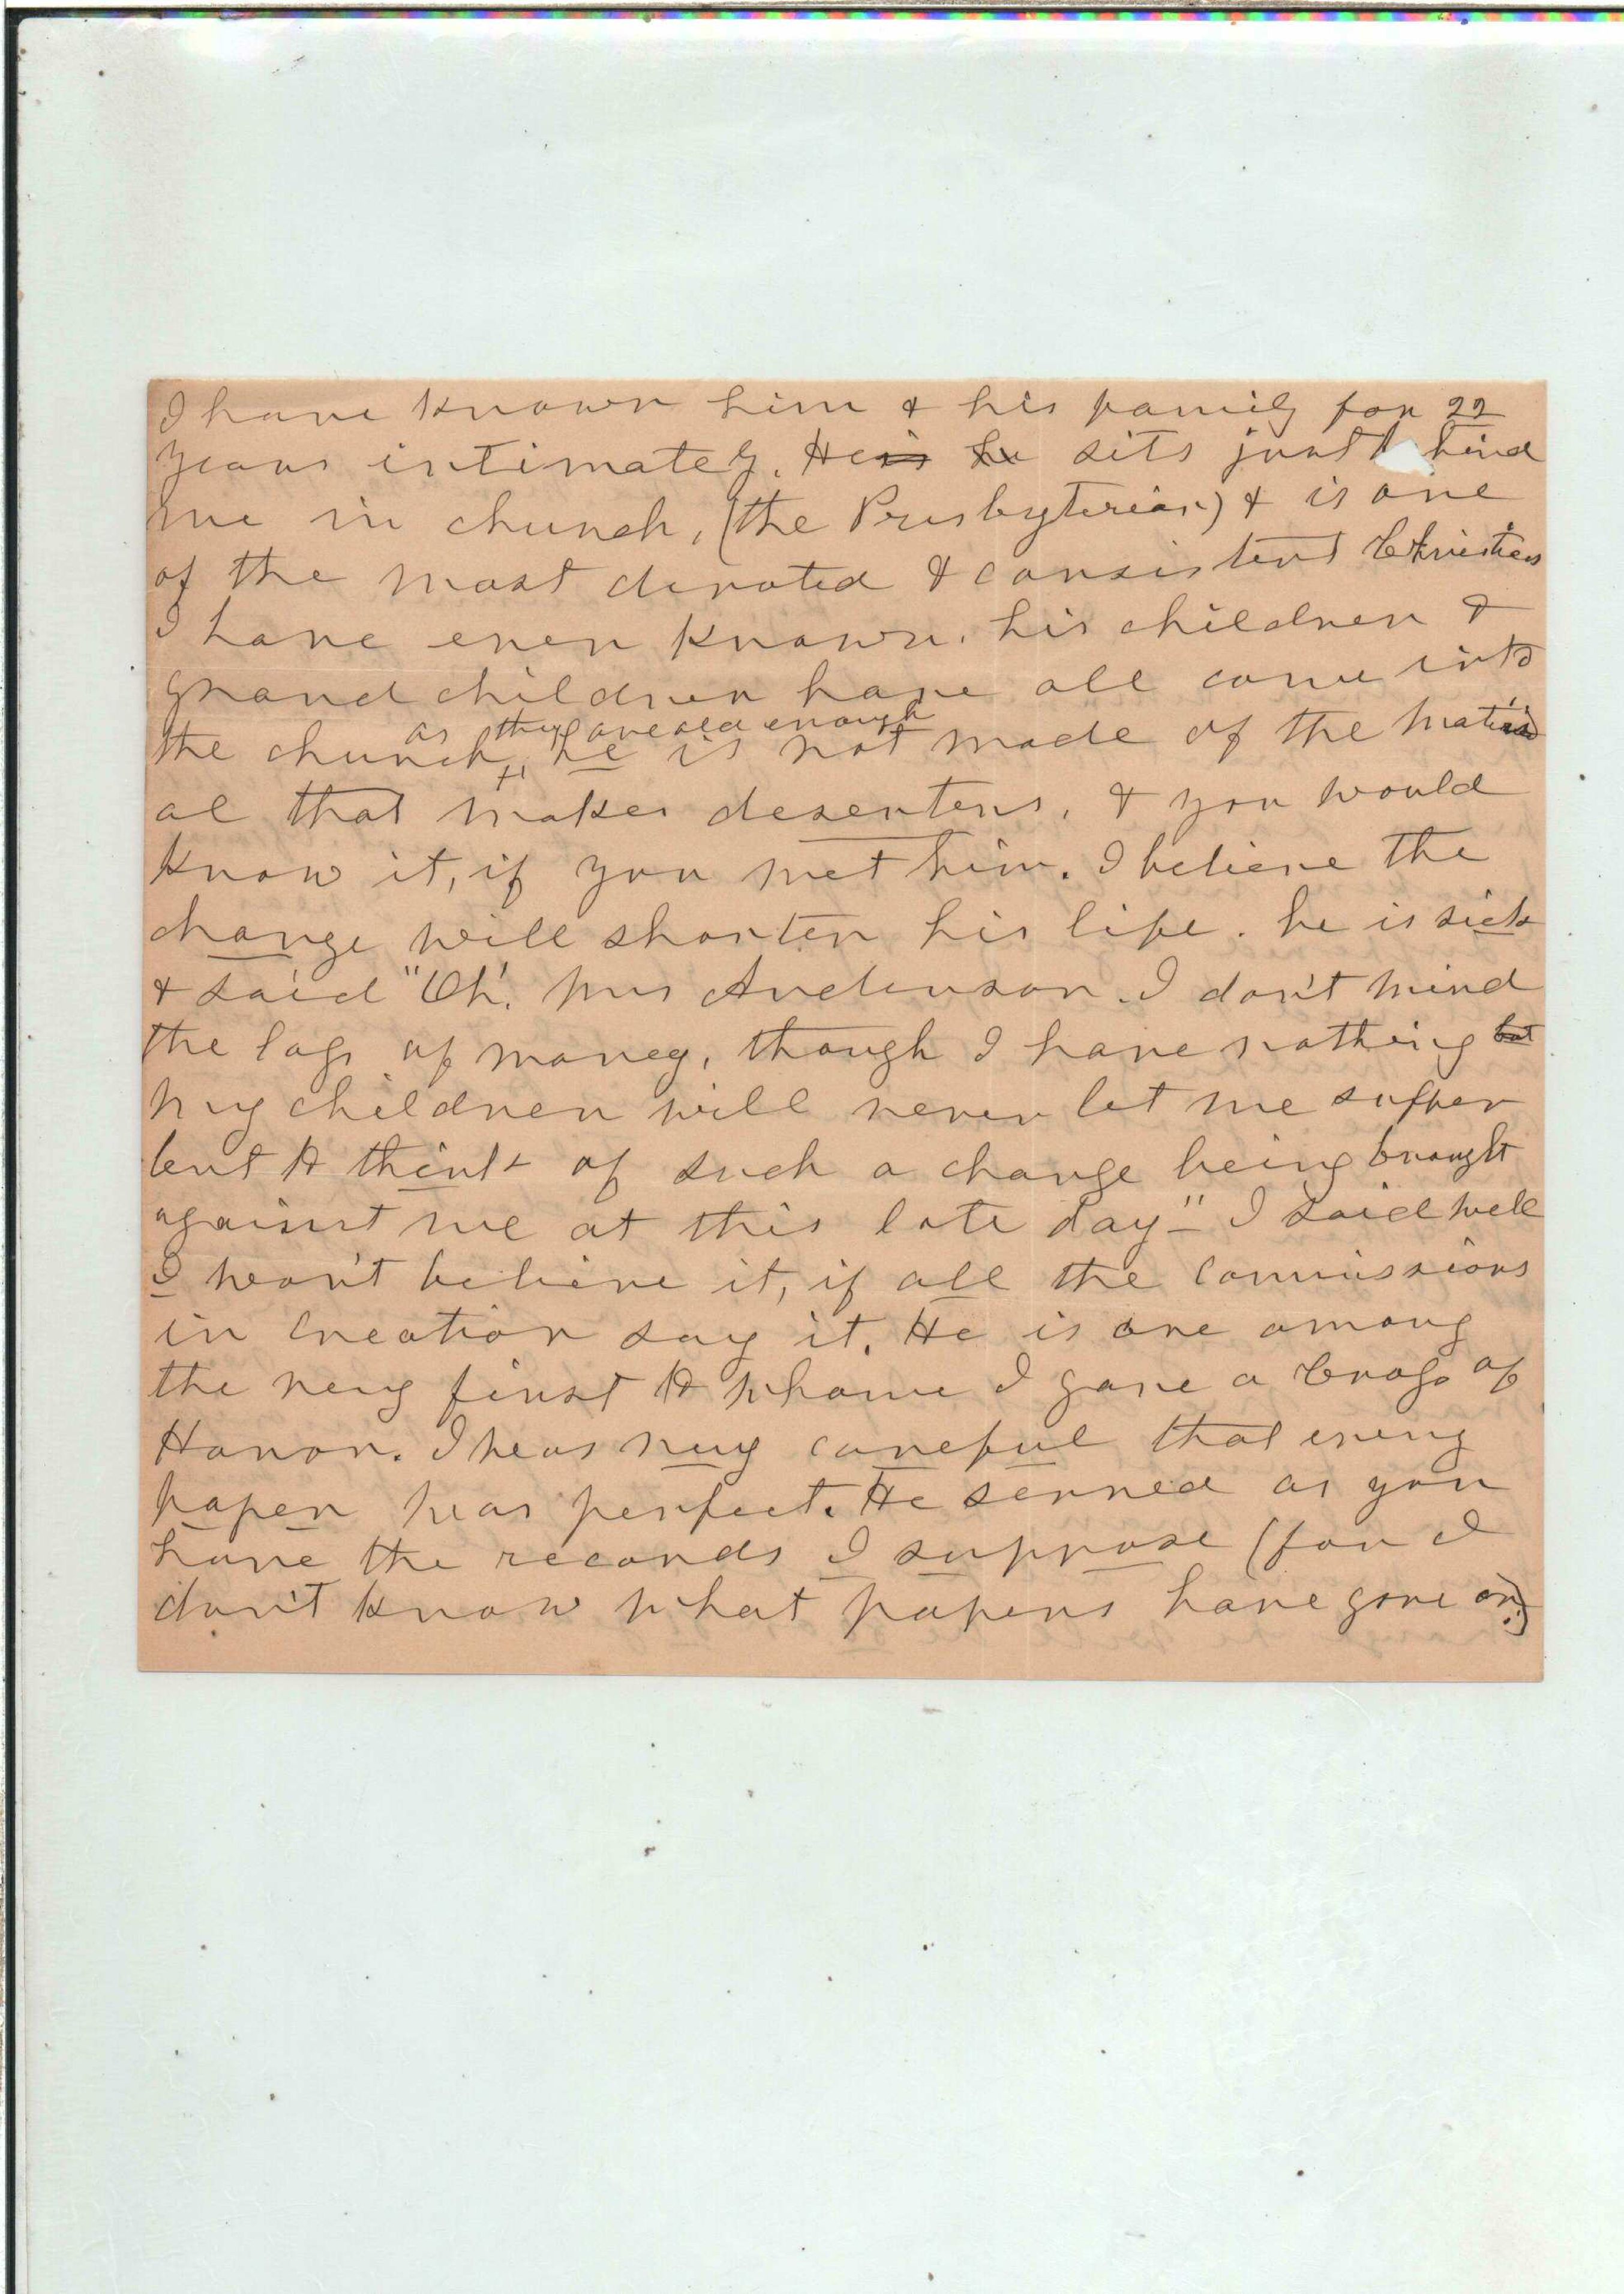 I have known him & his family for 22
years intimately. He is he sits just behind
me in church, (the Presbyterian) & is one
of the most devoted & consistent Christians
I have ever known, his children &
grand children have all come into
as they are old enough
the church, he is not made of the materi
al that makes deserters, & you would
know it, if you met him. I believe the
change will shorten his life. he is sick
& said "Oh! Mrs Anderson. I don't mind
the loss of money, though I have nothing but
my children will never let me suffer
but to think of such a charge being brought
against me at this late day" - I said well
I won't believe it, if all the Commissions
in Creation say it. He is one among
the very first to whom I gave a Cross of
Honor. I was very careful that every
paper was perfect. He served as you
have the records I suppose (for I
don't know what papers have gone on.)